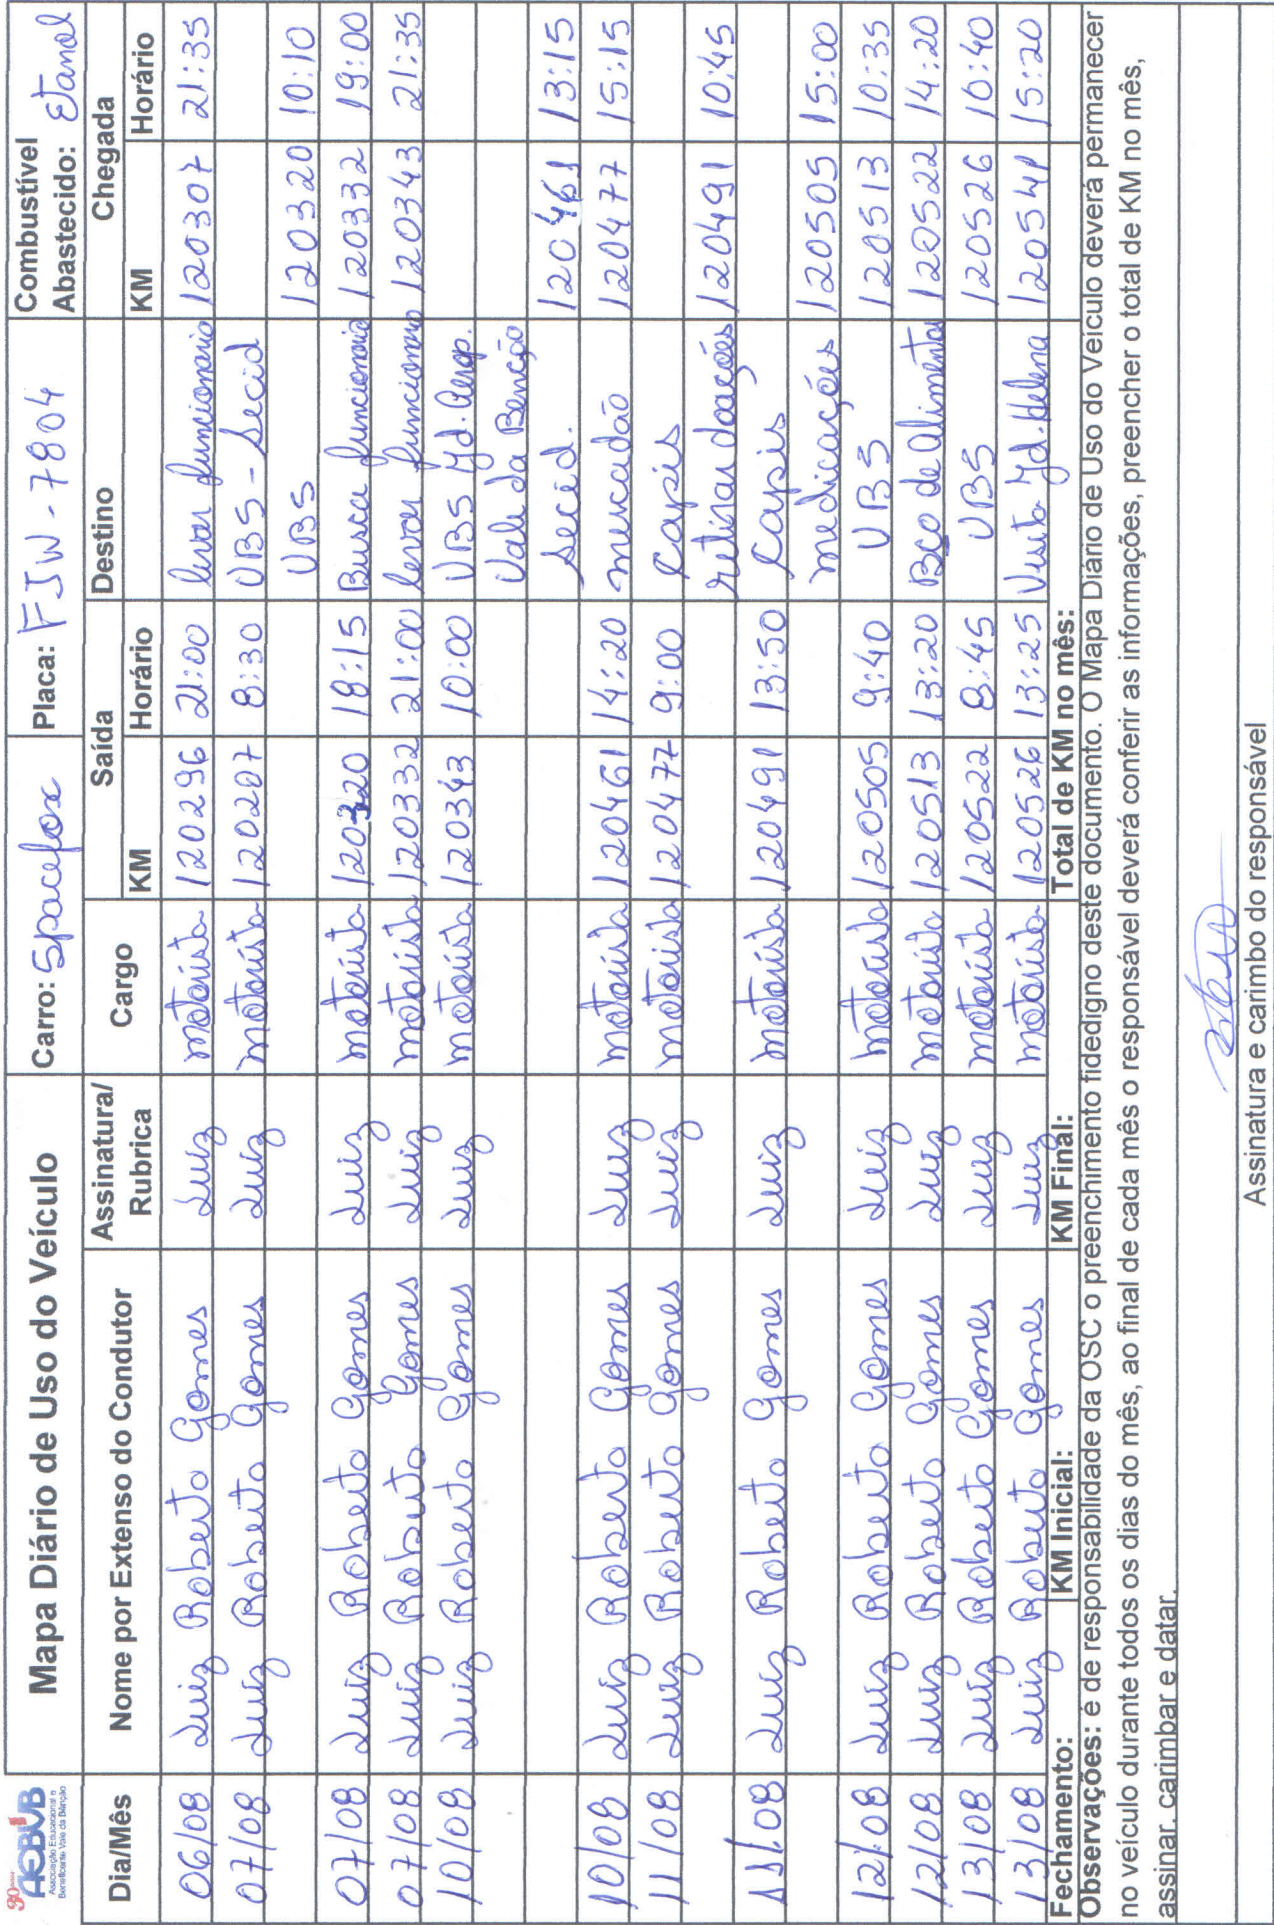 30 anos
AEBVB
Associação Educacional e
Beneficente Vale da Bênção
Mapa Diário de Uso do Veículo
Carro: Spacefox
Placa: FJW-7804
Combustível
Abastecido: Etanol
Dia/Mês Nome por Extenso do Condutor Assinatura/ Rubrica Cargo Saída Destino Chegada
KM Horário KM Horário
06/08 Luiz Roberto Gomes Luiz motorista 120296 21:00 levar funcionario 120307 21:35
07/08 Luiz Roberto Gomes Luiz motorista 120207 8:30 UBS - Secid
UBS 120320 10:10
07/08 Luiz Roberto Gomes Luiz motorista 120320 18:15 Busca funcionario 120332 19:00
07/08 Luiz Roberto Gomes Luiz motorista 120332 21:00 levar funcionario 120343 21:35
10/08 Luiz Roberto Gomes Luiz motorista 120343 10:00 UBS Jd. Aerop.
Vale da Benção
Secid. 120461 13:15
10/08 Luiz Roberto Gomes Luiz motorista 120461 14:20 mercadão 120477 15:15
11/08 Luiz Roberto Gomes Luiz motorista 120477 9:00 Capis
retirar doações 120491 10:45
11/08 Luiz Roberto Gomes Luiz motorista 120491 13:50 Capis
medicações 120505 15:00
12/08 Luiz Roberto Gomes Luiz motorista 120505 9:40 UBS 120513 10:35
12/08 Luiz Roberto Gomes Luiz motorista 120513 13:20 Bco de alimentos 120522 14:20
13/08 Luiz Roberto Gomes Luiz motorista 120522 8:45 UBS 120526 10:40
13/08 Luiz Roberto Gomes Luiz motorista 120526 13:25 Visita Jd. Helena 120541 15:20
Fechamento: KM Inicial: KM Final: Total de KM no mês:
Observações: é de responsabilidade da OSC o preenchimento fidedigno deste documento. O Mapa Diário de Uso do Veículo deverá permanecer
no veículo durante todos os dias do mês, ao final de cada mês o responsável deverá conferir as informações, preencher o total de KM no mês,
assinar, carimbar e datar.
Assinatura e carimbo do responsável